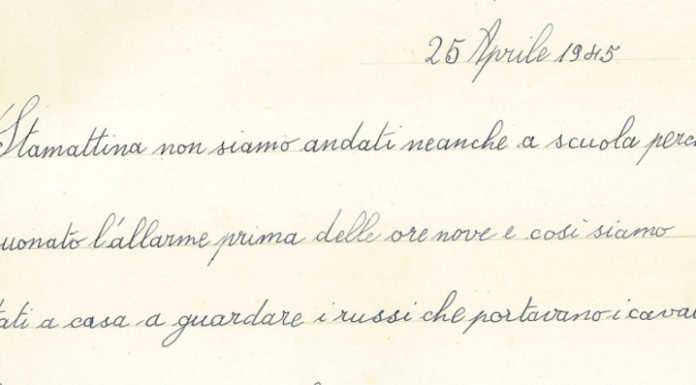 25 Aprile 1945
Stamattina non siamo andati neanche a scuola perc
uonato l'allarme prima delle ore nove e così siamo
tati a casa a guardare i russi che portavano i caval